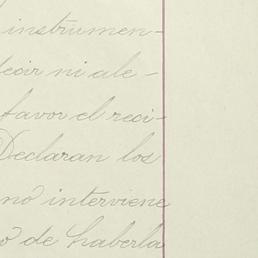 instrumen-
decir ni ale-
favor el reci-
Declaran los
no interviene
o de haberla